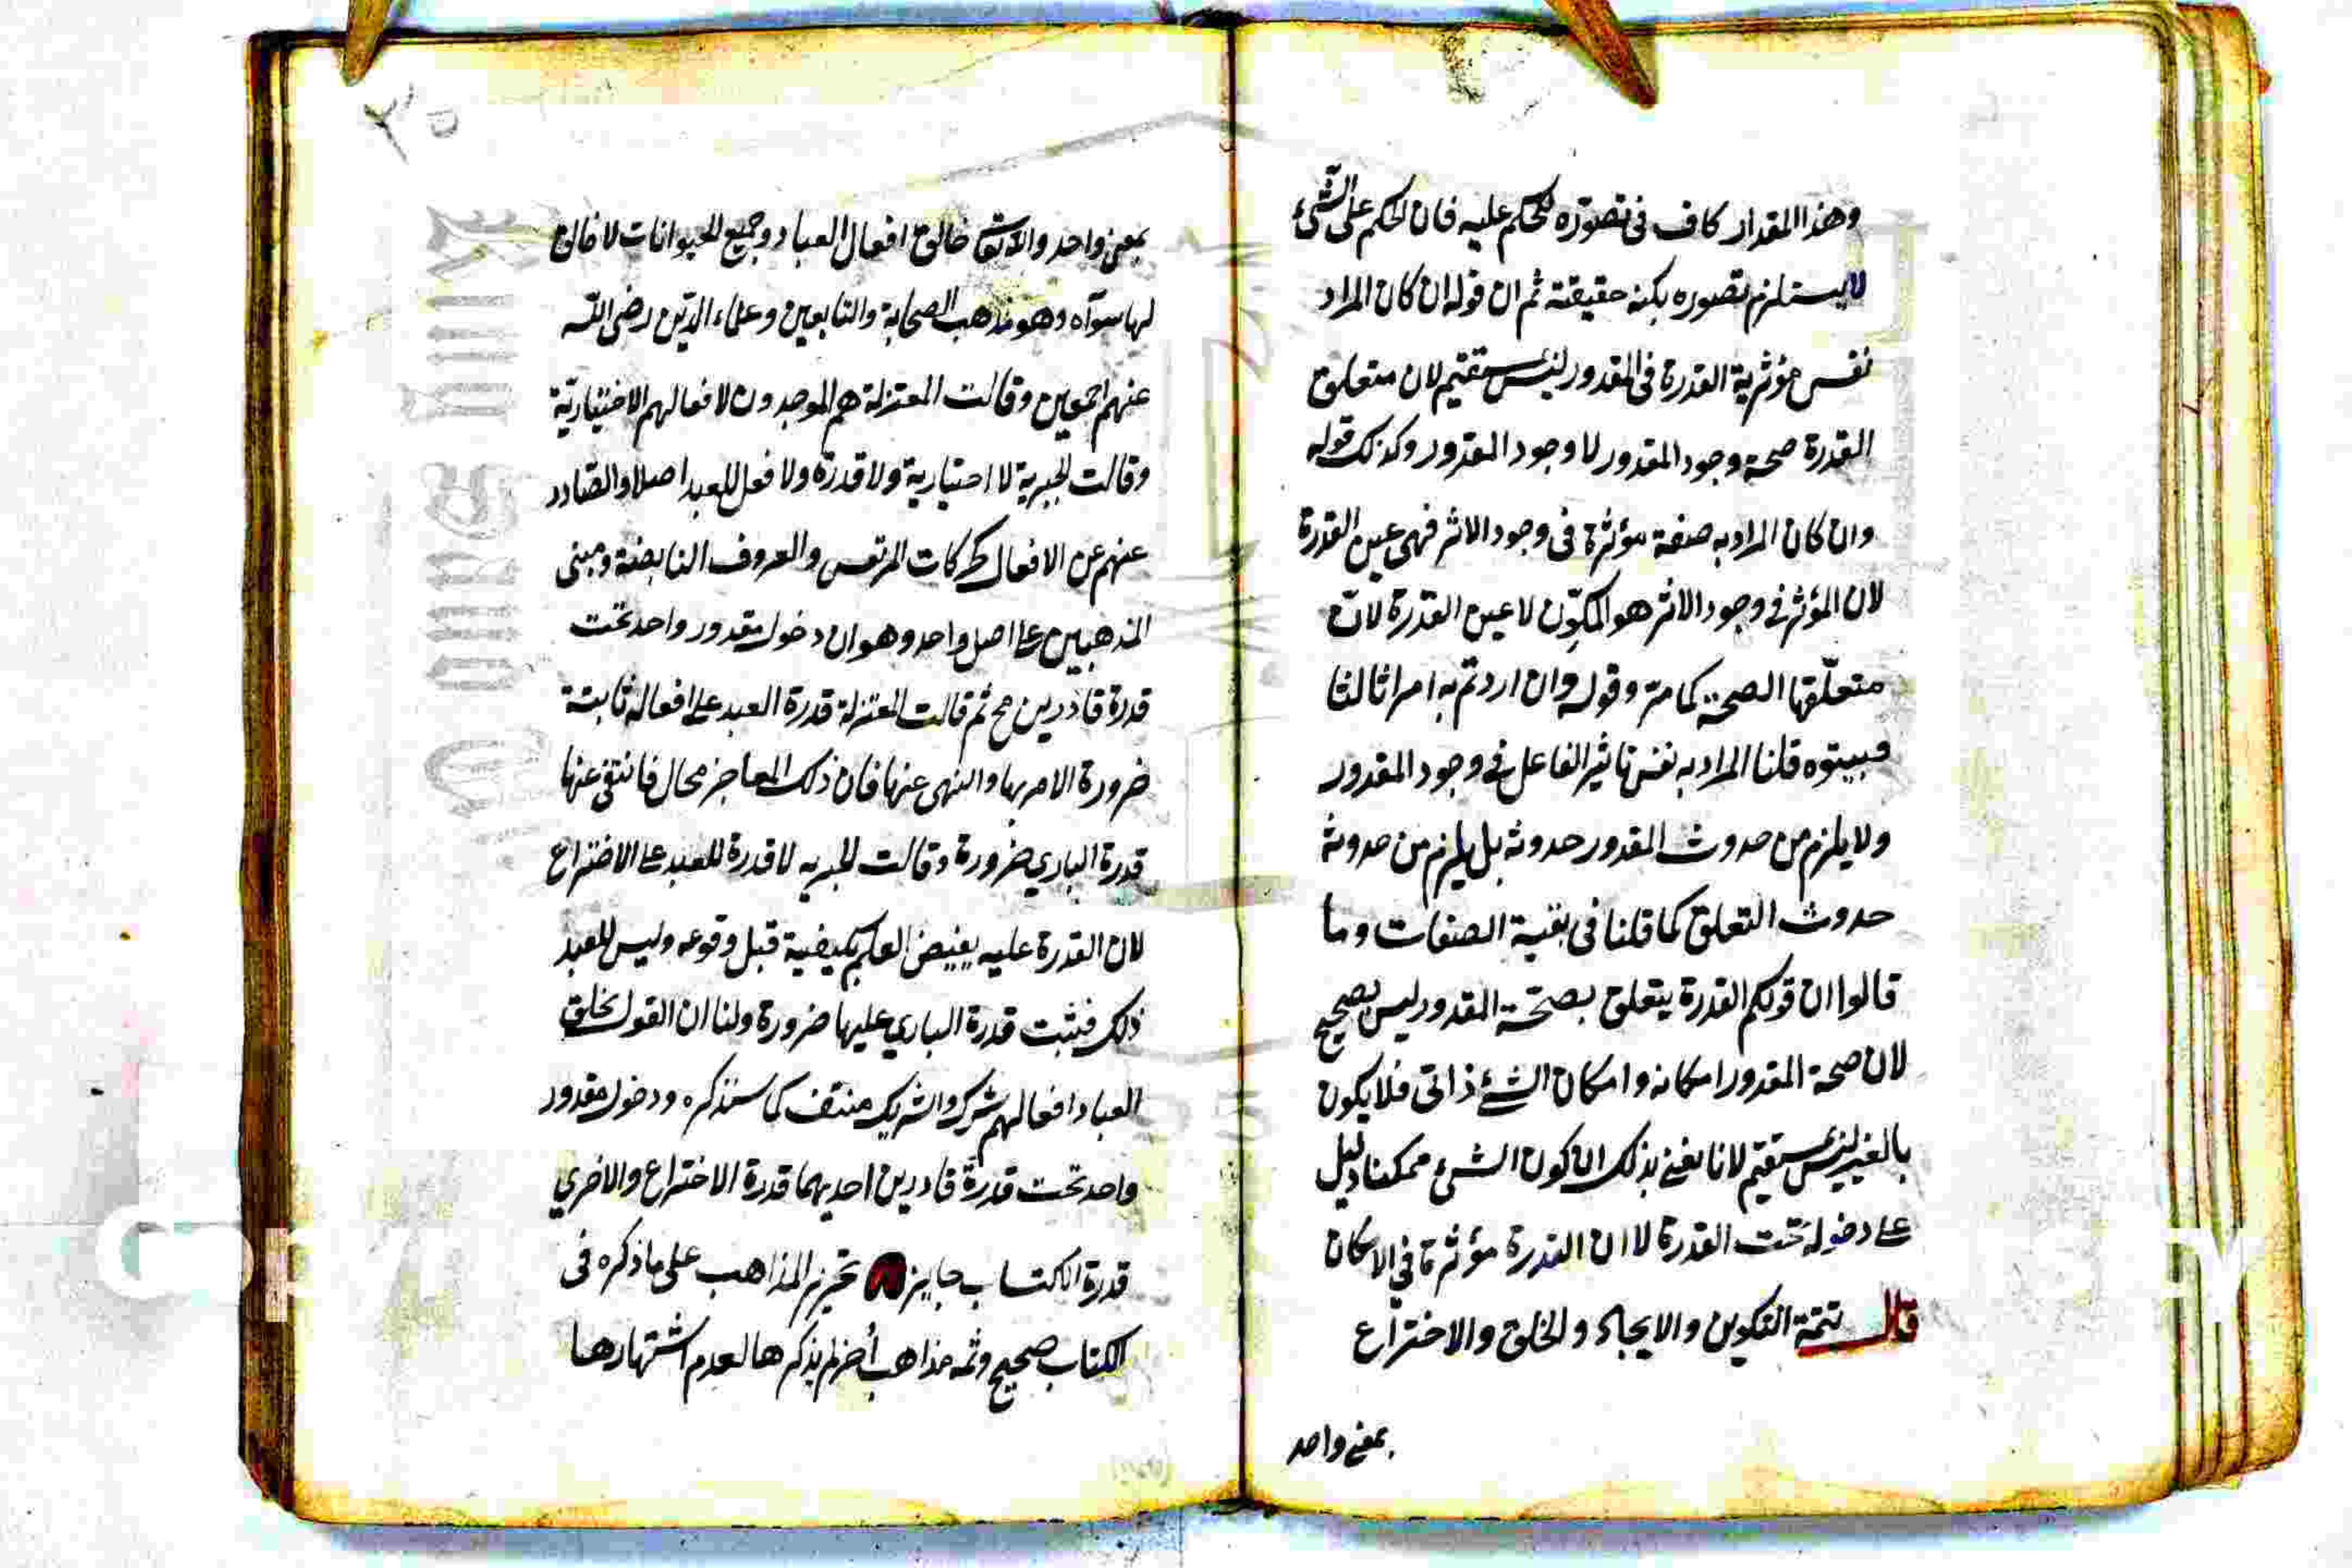 وهذا المقدار كاف فى تصوّره للحكم عليه فان الحكم على الشّئ
لايستلزم تصوره بكنه حقيقته ثم ان قوله ان كان المراد
نفس مؤثرية القدرة فى المقدور ليس بمستقيم لان متعلق
القدرة صحة وجود المقدور لا وجود المقدور وكذلك قوله
وان كان المراد به صفة مؤثرة فى وجود الاثر فهى عين القدرة
لان المؤثر فى وجود الاثر هو المكوّن لا عين القدرة لانّ
متعلّقها الصحة كما مرّ وقوله وان اردتم به امرا ثالثا
فبيّنوه قلنا المراد به نفس تاثير الفاعل فى وجود المقدور
ولا يلزم من حدوث المقدور حدوثه بل يلزم من حدوثه
حدوث التعلق كما قلنا فى بقية الصفات وما
قالوا ان قولكم القدرة يتعلق بصحّة المقدور ليس بصحيح
لان صحة المقدور امكانه وامكان الشئ ذاتى فلا يكون
بالغير ليس بمستقيم لانا نعنى بذلك ان كون الشئ ممكنا دليل
على دخوله تحت القدرة لا ان القدرة مؤثرة فى الامكان
قال تتمة التكوين والايجاد والخلق والاختراع
بمعنى واحد
٢٥
بمعنى واحد والله تعالى خالق افعال العباد وجميع الحيوانات لا خالق
لها سواه وهو مذهب الصحابة والتابعين وعلماء الدّين رضى اللّه
عنهم اجمعين وقالت المعتزلة هم الموجدون لافعالهم الاختياريّة
وقالت الجبرية لا اختيارية ولا قدرة ولا فعل للعبد اصلا والصادر
عنهم من الافعال كحركات المرتعش والعروف النابضة ومبنى
المذهبين على اصل واحد وهو ان دخول مقدور واحد تحت
قدرة قادرين مح ثم قالت المعتزلة قدرة العبد على افعاله ثابتة
ضرورة الامر بها والنهى عنها فان ذلك للعاجز محال فانتفى عنها
قدرة البارى ضرورة وقالت الجبريه لا قدرة للعبد على الاختراع
لان القدرة عليه يفيض العلم بكيفية قبل وقوعه وليس للعبد
ذلك فثبت قدرة البارى عليها ضرورة ولنا ان القول بخلق
العباد افعالهم شرك والشريك منتف كما سنذكره ودخول مقدور
واحد تحت قدرة قادرين احديهما قدرة الاختراع والاخرى
قدرة الاكتساب جايز تحرير المذاهب على ما ذكره فى
الكتاب صحيح وثمه مذاهب أخر لم يذكرها لعدم اشتهارها